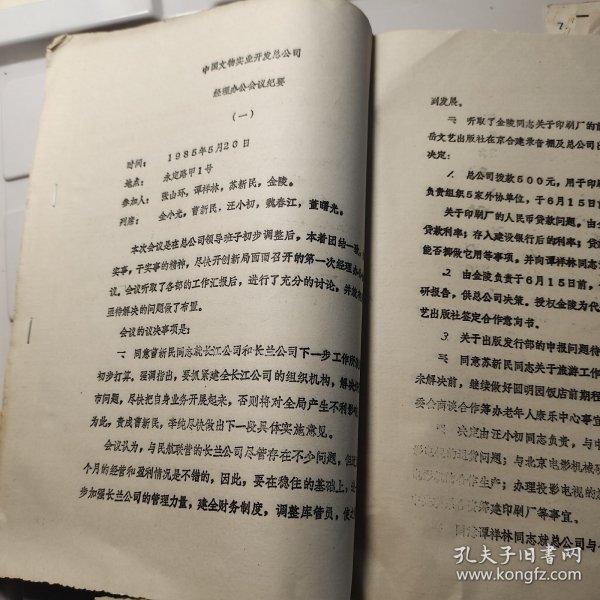 中国文物实业开发总公司
经理办公会议纪要
（一）
时间： 1985年5月20日
地点： 永定路甲1号
参加人： 张山环，谭祥林，苏新民，金陵。
列席： 金小光，曹新民，汪小初，魏春江，董曙光。
本次会议是在总公司领导班子初步调整后，本着团结一致
实事，干实事的精神，尽快开创新局面而召开的第一次经理办
议。会议听取了各部的工作汇报后，进行了充分的讨论，并
亟待解决的问题做了布置。
会议的议决事项是：
一 同意曹新民同志就长江公司和长兰公司下一步工作所
初步打算。强调指出，要抓紧建全长江公司的组织机构，解决
市问题，尽快把自身业务开展起来，否则将对全局产生不利影
为此，责成曹新民，李纯尽快做出下一段具体实施意见。
会议认为，与民航联营的长兰公司尽管存在不少问题，但
个月的经营和盈利情况是不错的，因此，要在稳住的基础上，
步加强长兰公司的管理力量，建全财务制度，调整库管员，
到发展。
二 听取了金陵同志关于印刷厂的
岳文艺出版社在京合建录音棚及总公司
决定：
1. 总公司拨款500元，用于印
负责组织5家外协单位，于6月15日
关于印刷厂的人民币贷款问题。由金
贷款利率；存入建设银行后的利率；贷
能否挪做它用等事项，并向谭祥林同志
2. 由金陵负责于6月15日前，
研报告，供总公司决策。授权金陵为代
艺出版社签定合作意向书。
3. 关于出版发行部的申报问题待
同意苏新民同志关于旅游工作
未解决前，继续做好回明园饭店前期程
委会商谈合作筹办老年人康乐中心事宜
决定由汪小初同志负责，与中
的退货问题；与北京电影机械
生产；办理投影电视的
建印刷厂等事宜。
同意谭祥林同志就总公司与
孔夫子旧书网
www.kongfz.com